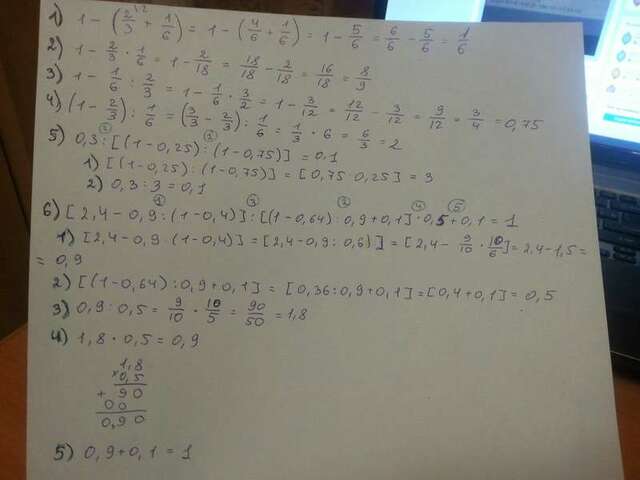 1) 1 - (2/3^{\2} + 1/6) = 1 - (4/6 + 1/6) = 1 - 5/6 = 6/6 - 5/6 = 1/6
2) 1 - 2/3 · 1/6 = 1 - 2/18 = 18/18 - 2/18 = 16/18 = 8/9
3) 1 - 1/6 : 2/3 = 1 - 1/6 · 3/2 = 1 - 3/12 = 12/12 - 3/12 = 9/12 = 3/4 = 0,75
4) (1 - 2/3) : 1/6 = (3/3 - 2/3) : 1/6 = 1/3 · 6 = 6/3 = 2
5) 0,3 : [(1-0,25) : (1-0,75)] = 0,1
1) [(1-0,25) : (1-0,75)] = [0,75 : 0,25] = 3
2) 0,3 : 3 = 0,1
① ③ ② ④ ⑤
6) [2,4 - 0,9 : (1-0,4)] : [(1-0,64) : 0,9 + 0,1] · 0,5 + 0,1 = 1
1) [2,4 - 0,9 : (1-0,4)] = [2,4 - 0,9 : 0,6)] = [2,4 - 9/10 · 10/6] = 2,4 - 1,5 =
= 0,9
2) [(1-0,64) : 0,9 + 0,1] = [0,36 : 0,9 + 0,1] = [0,4 + 0,1] = 0,5
3) 0,9 : 0,5 = 9/10 · 10/5 = 90/50 = 1,8
4) 1,8 · 0,5 = 0,9
1,8
×0,5
+ 90
00
0,90
5) 0,9 + 0,1 = 1